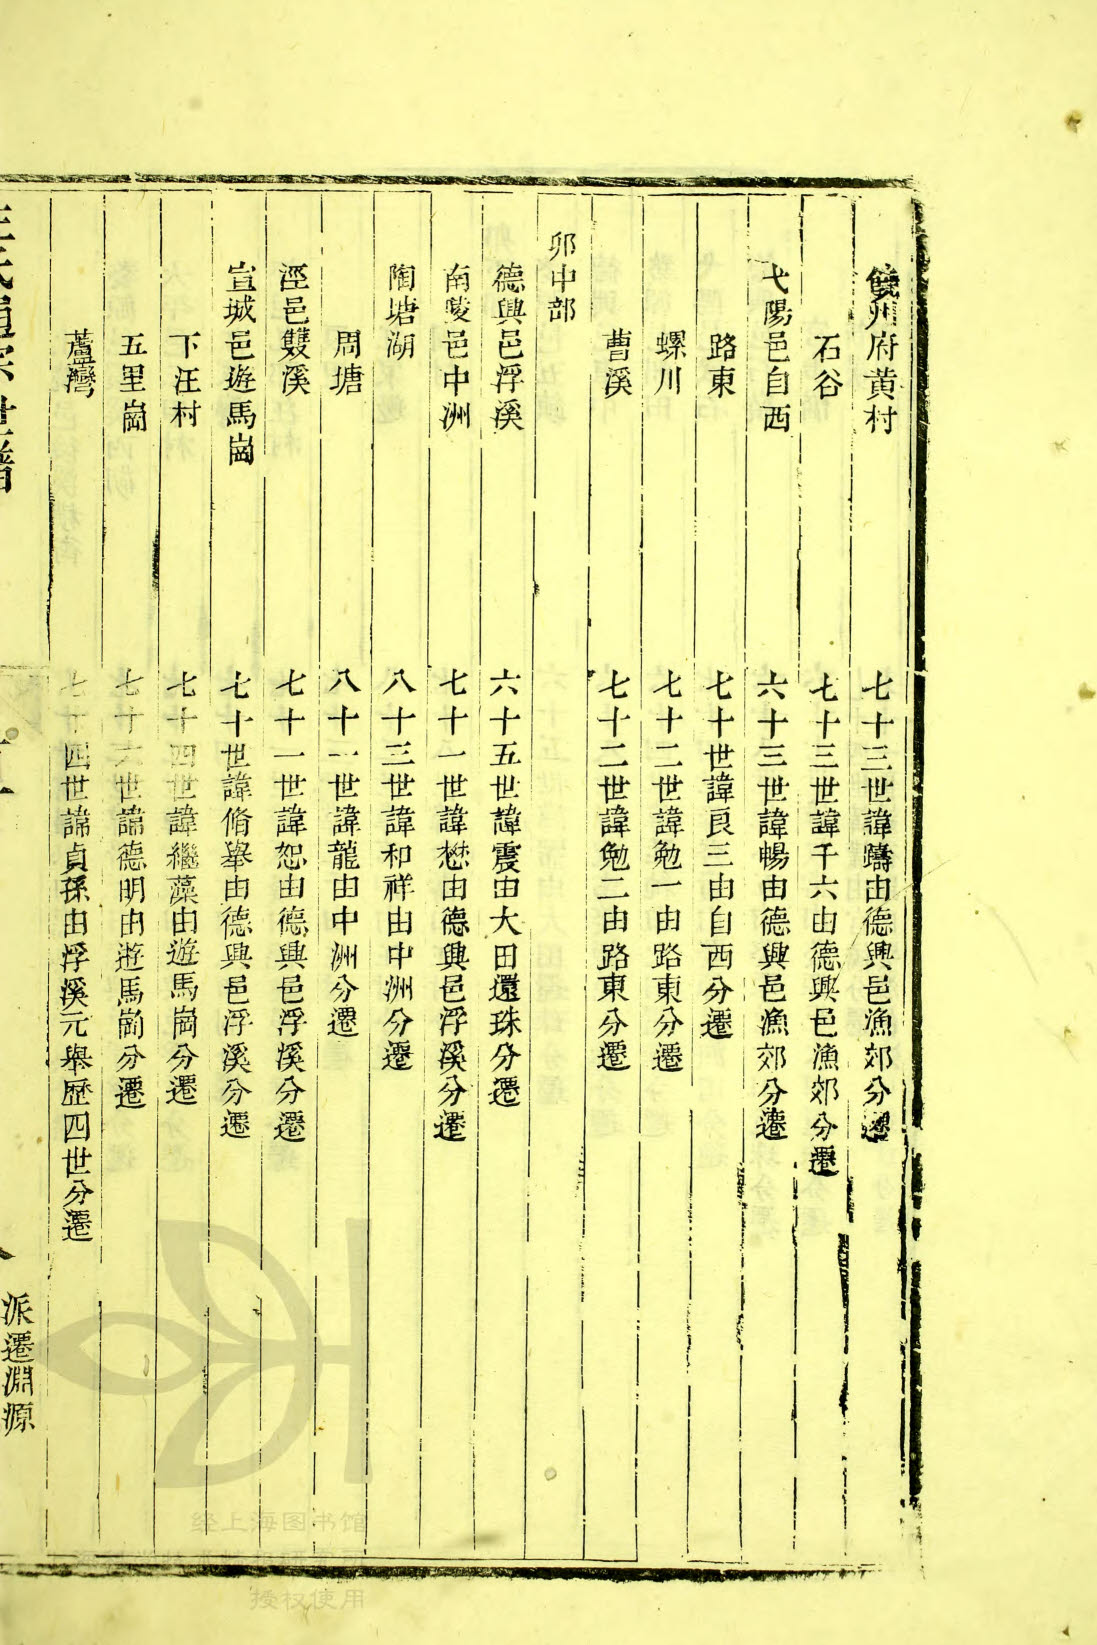 饒州府黄村　七十三世諱躊由德興邑漁郊分遷
石谷　七十三世諱千六由德興邑漁郊分遷
弋陽邑自西　六十三世諱暢由德興邑漁郊分遷
路東　七十世諱良三由自西分遷
螺川　七十二世諱勉一由路東分遷
曹溪　七十二世諱勉二由路東分遷
卯中部
德興邑浮溪　六十五世諱震由大田還珠分遷
南陵邑中洲　七十一世諱懋由德興邑浮溪分遷
陶塘湖　八十三世諱和祥由中洲分遷
周塘　八十一世諱龍由中洲分遷
涇邑雙溪　七十一世諱恕由德興邑浮溪分遷
宣城邑遊馬崗　七十世諱脩舉由德興邑浮溪分遷
下汪村　七十四世諱繼藻由遊馬崗分遷
五里崗　七十六世諱德明由遊馬崗分遷
蘆灣　七十四世諱貞孫由浮溪元舉歷四世分遷
派遷淵源
经上海图书馆
授权使用